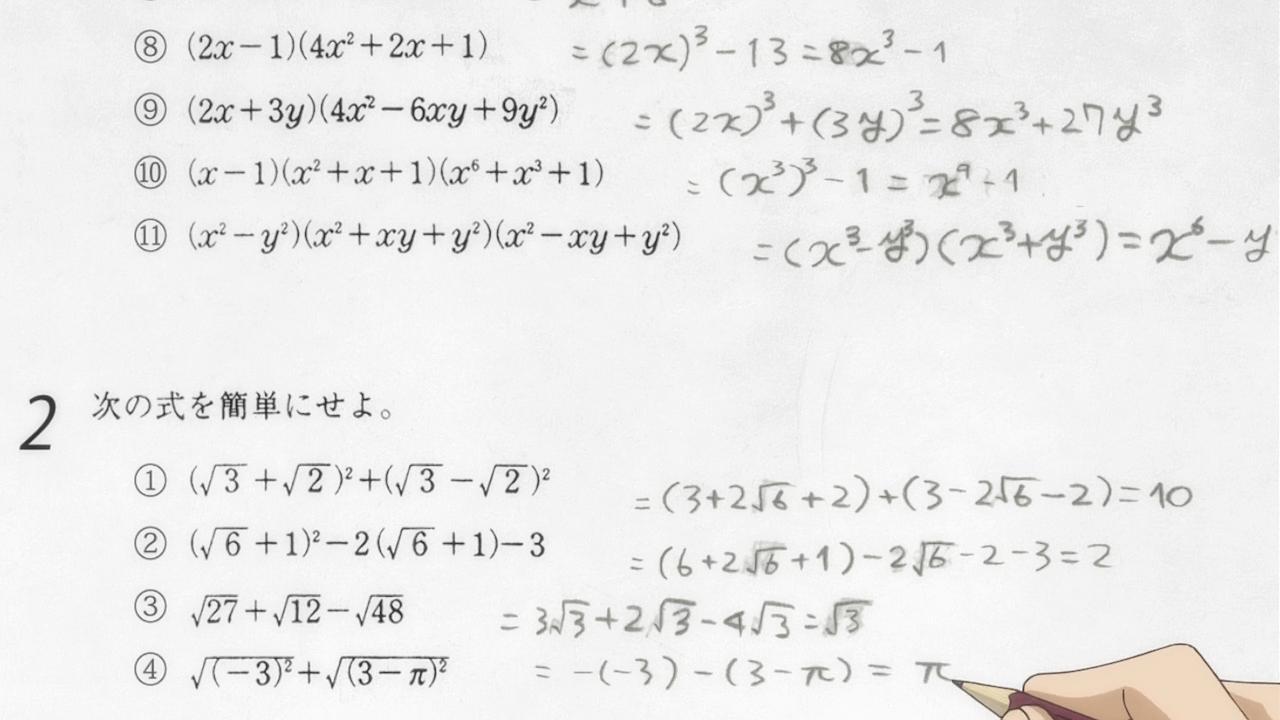 ⑧ (2x−1)(4x²+2x+1) = (2x)³ − 13 = 8x³ − 1
⑨ (2x+3y)(4x²−6xy+9y²) = (2x)³+(3y)³ = 8x³+27y³
⑩ (x−1)(x²+x+1)(x⁶+x³+1) = (x³)³ − 1 = x⁹ − 1
⑪ (x²−y²)(x²+xy+y²)(x²−xy+y²) = (x³−y³)(x³+y³) = x⁶ − y
2 次の式を簡単にせよ。
① (√3+√2)²+(√3−√2)² = (3+2√6+2)+(3−2√6−2) = 10
② (√6+1)²−2(√6+1)−3 = (6+2√6+1)−2√6−2−3 = 2
③ √27+√12−√48 = 3√3+2√3−4√3 = √3
④ √(−3)²+√(3−π)² = −(−3)−(3−π) = π